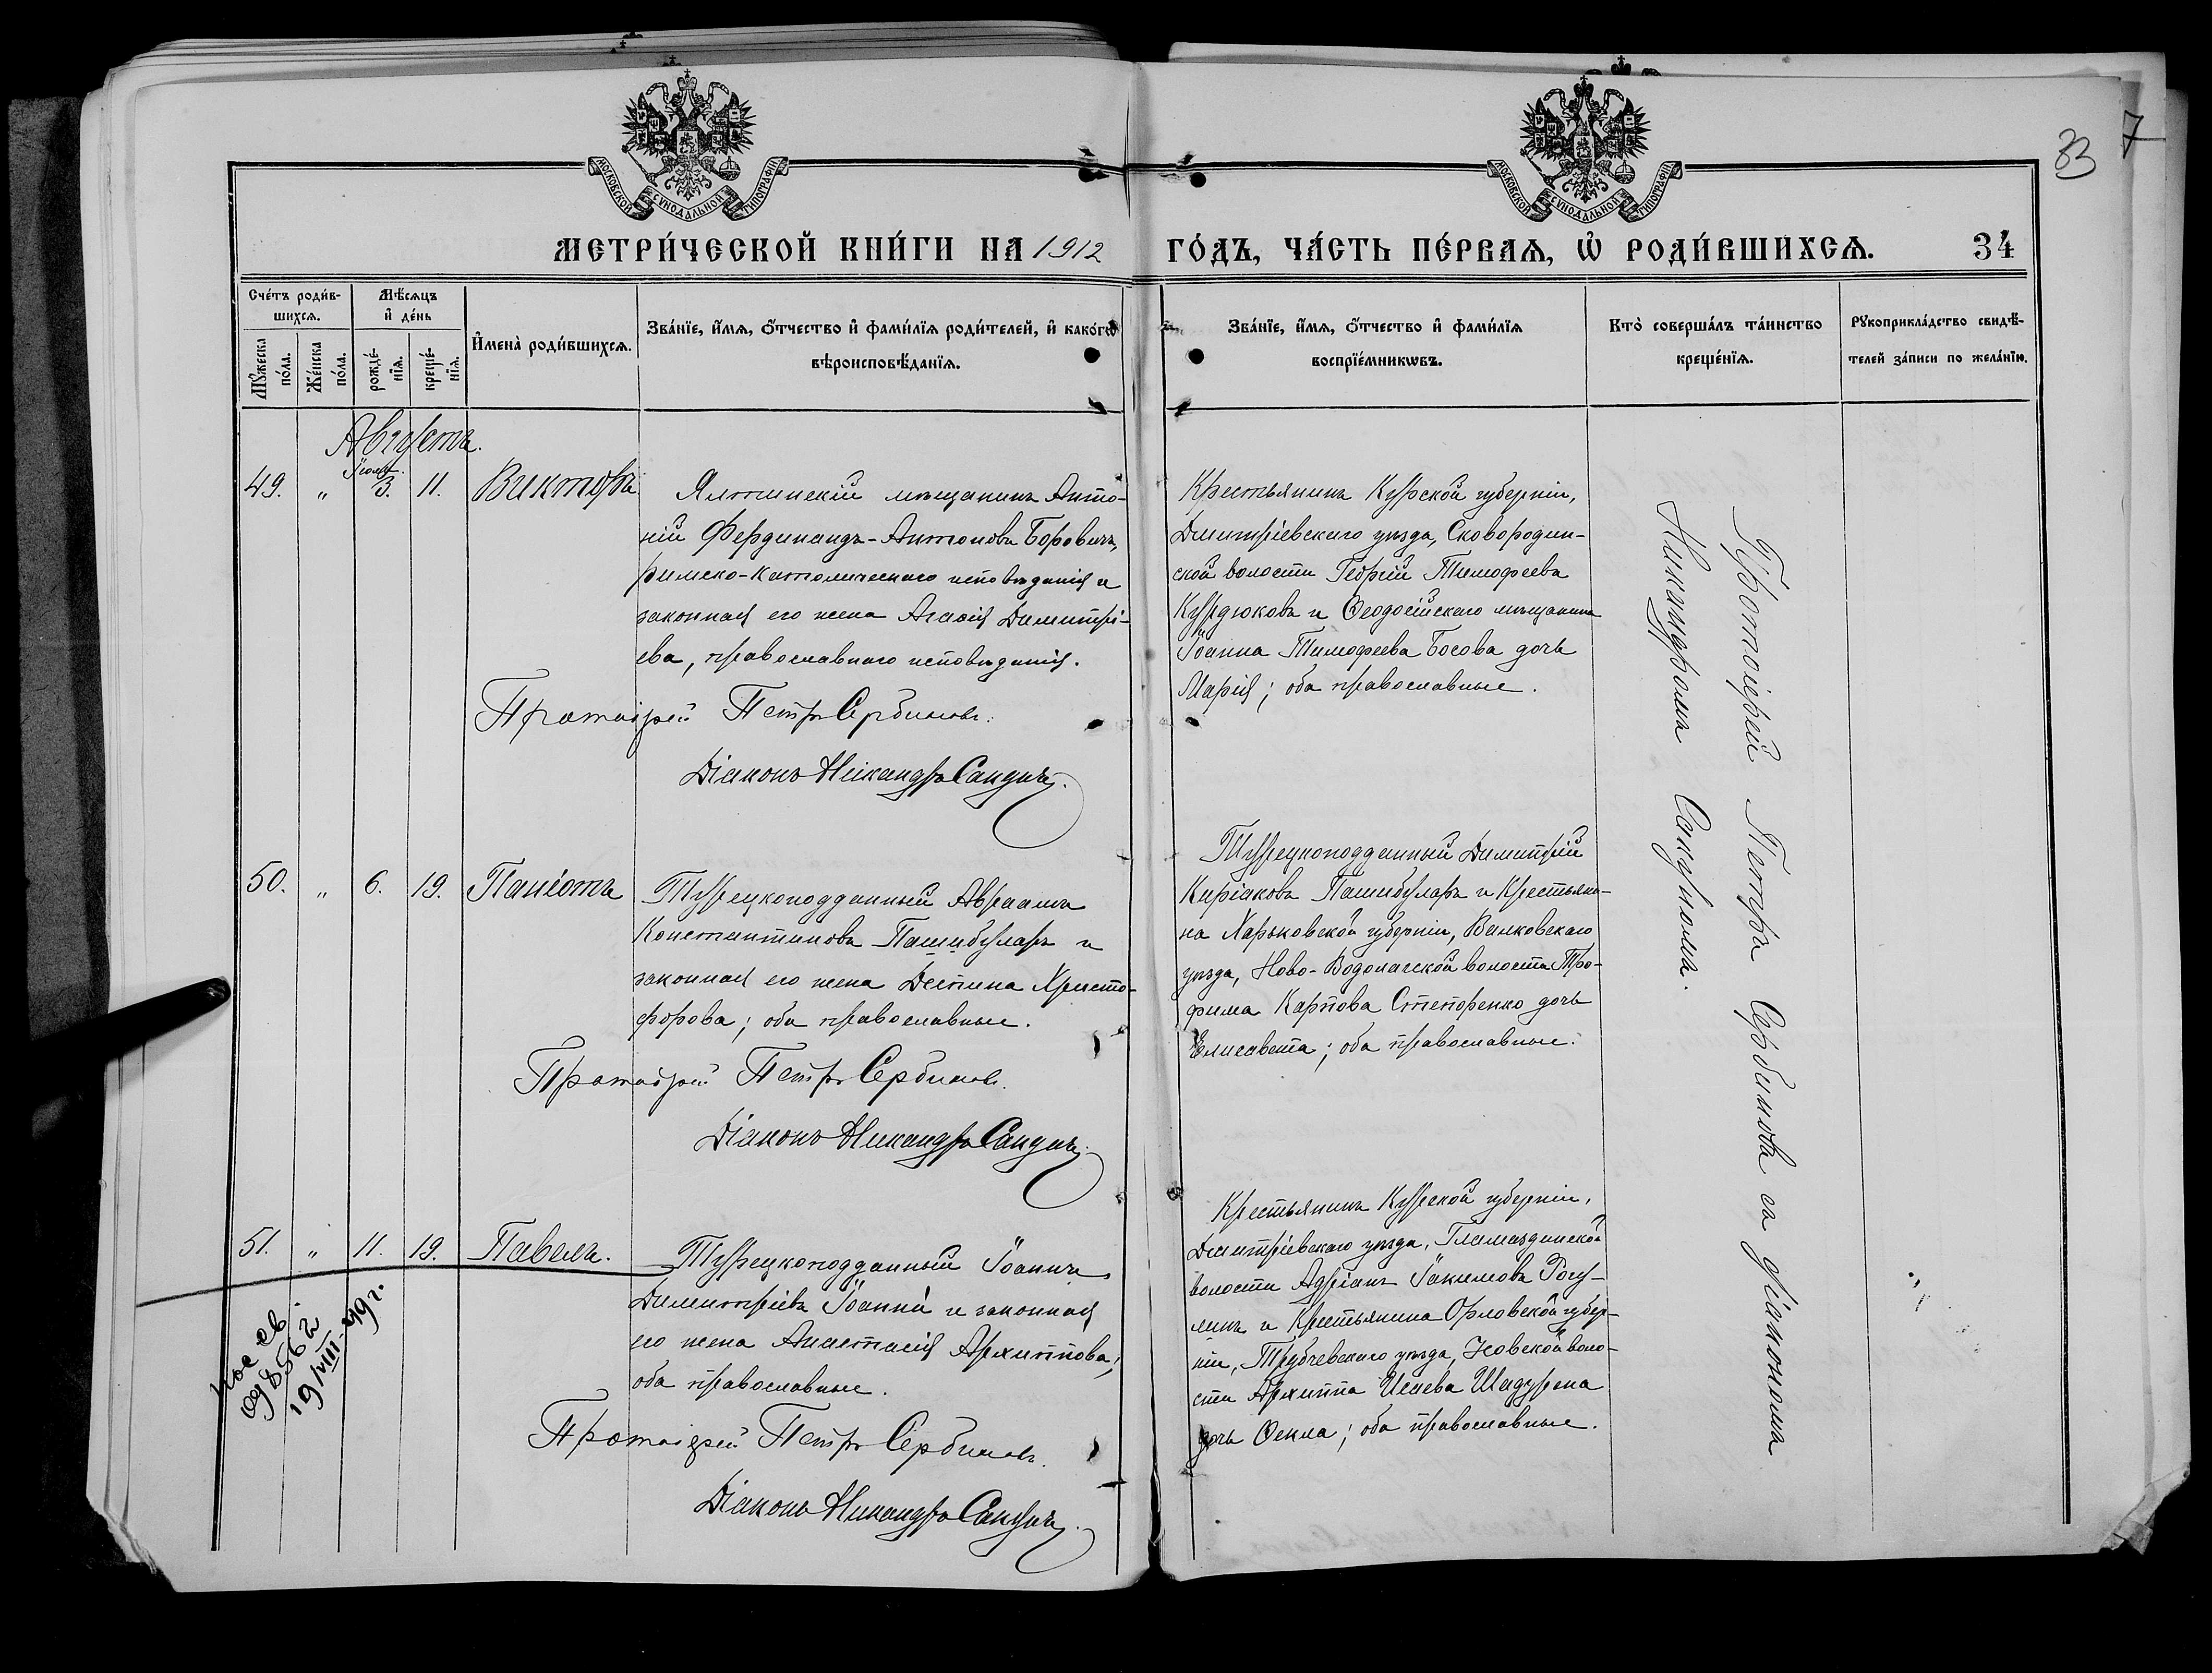 33
7
МОСКОВСКОЙ СѴНОДАЛЬНОЙ ТИПОГРАФІИ
МОСКОВСКОЙ СѴНОДАЛЬНОЙ ТИПОГРАФІИ
МЕТРИ́ЧЕСКОЙ КНИ́ГИ НА 1912
ГО́ДЪ, ЧА́СТЬ ПЕ́РВАѦ, Ѡ҆ РОДИ́ВШИХСѦ.
34
Сче́тъ роди́в-
шихсѧ.
Мѣ́сѧцъ
и҆ де́нь
Мꙋ́жеска
по́ла.
Же́нска
по́ла.
рожде́-
нїѧ.
креще́-
нїѧ.
И҆мена̀ роди́вшихсѧ.
Зва́нїе, и҆́мѧ, ѻ҆́тчество и҆ фами́лїѧ роди́телей, и҆ како́гѡ
вѣроисповѣ́данїѧ.
Зва́нїе, и҆́мѧ, ѻ҆́тчество и҆ фами́лїѧ
воспрїе́мникѡвъ.
Кто̀ соверша́лъ та́инство
креще́нїѧ.
Рꙋкоприкла́дство свидѣ́-
телей за́писи по жела́нїю.
Августъ.
Іюля
49. „ 3. 11. Викторъ
Ялтинскій мѣщанинъ Анто-
ній Фердинандъ-Антоновъ Боровичъ,
римско-католическаго исповѣданія и
законная его жена Агаѳія Димитрі-
ева, православнаго исповѣданія.
Протоіерей Петръ Сербиновъ.
Діаконъ Никандръ Сакунъ.
Крестьянинъ Курской губерніи,
Дмитріевскаго уѣзда, Сковородин-
ской волости Георгій Тимофеевъ
Курдюковъ и Ѳеодосійскаго мѣщанина
Іоанна Тимофеева Босова дочь
Марія; оба православные.
50. „ 6. 19. Панаіотъ
Турецкоподданный Авраамъ
Константиновъ Пашибуларъ и
законная его жена Деспина Христо-
форова; оба православные.
Протоіерей Петръ Сербиновъ.
Діаконъ Никандръ Сакунъ.
Турецкоподданный Димитрій
Киріаковъ Пашибуларъ и Крестьяни-
на Харьковской губерніи, Валковскаго
уѣзда, Ново-Водолагской волости Тро-
фима Карпова дочь
Елисавета; оба православные.
51. „ 11. 19. Павелъ.
Турецкоподданный Іоаннъ
Димитріевъ Іоанна и законная
его жена Анастасія Архиппова;
оба православные.
Протоіерей Петръ Сербиновъ.
Діаконъ Никандръ Сакунъ.
Крестьянинъ Курской губерніи,
Дмитріевскаго уѣзда, Гламаздинской
волости Адріанъ Іакимовъ Рогу-
линъ и Крестьянина Орловской губер-
ніи, Трубчевскаго уѣзда, воло-
сти Архиппа Исаева
дочь Ѳекла; оба православные.
Протоіерей Петръ Сербиновъ съ діакономъ
Никандромъ Сакуномъ.
19/VIII-49г.